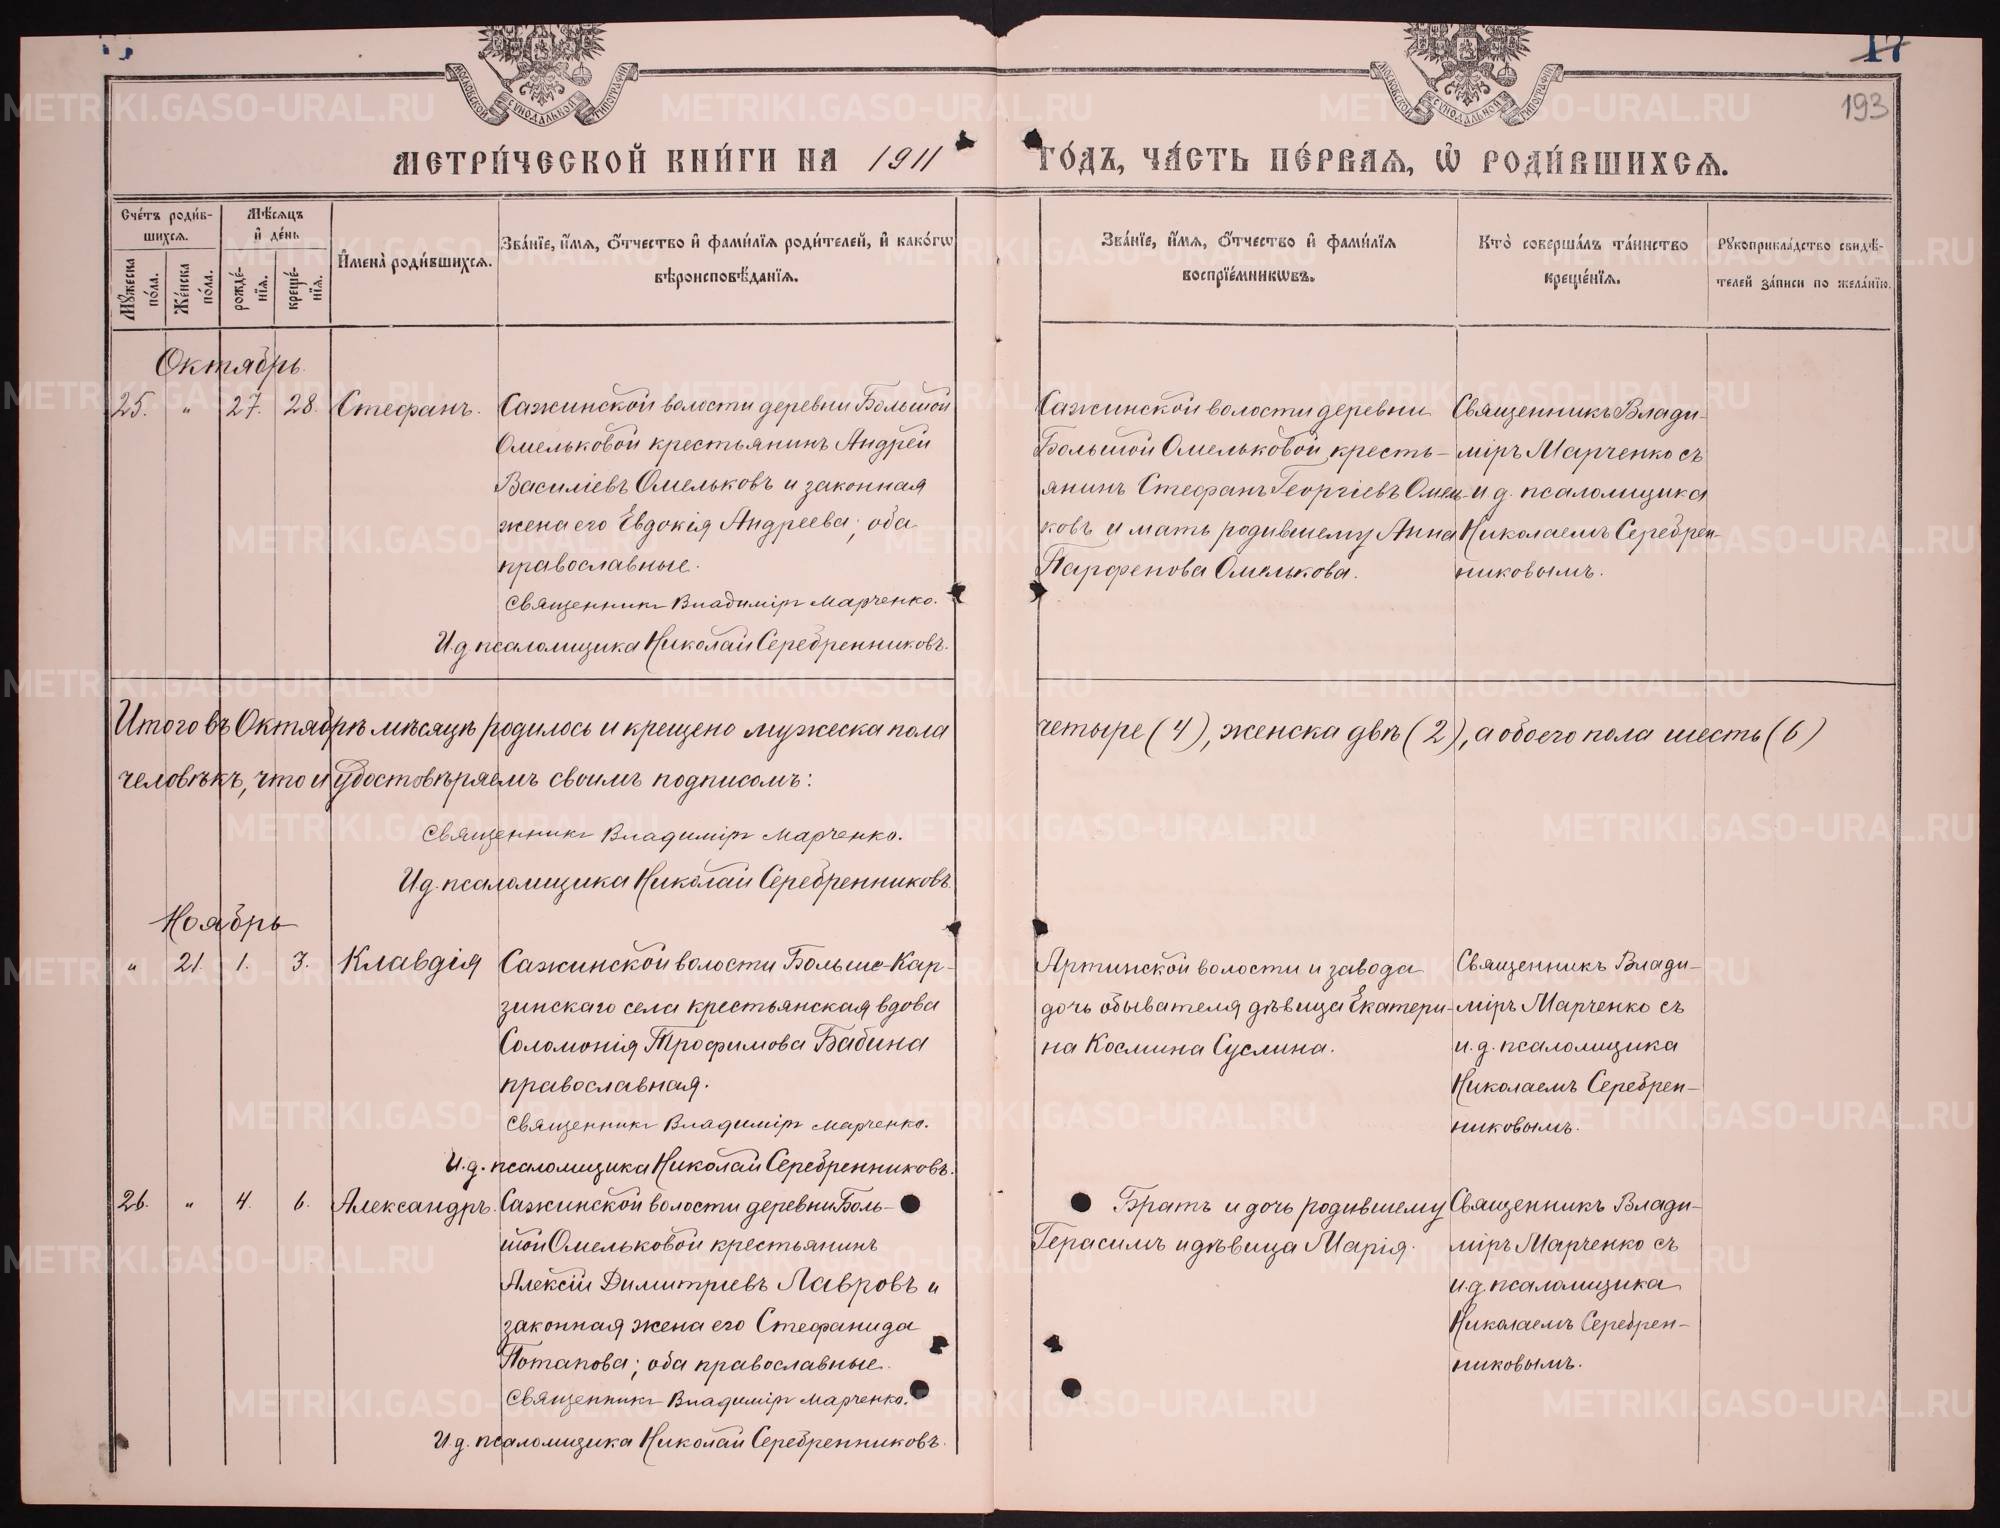 17
193
МОСКОВСКОЙ СѴНОДАЛЬНОЙ ТИПОГРАФІИ
МОСКОВСКОЙ СѴНОДАЛЬНОЙ ТИПОГРАФІИ
МЕТРИ́ЧЕСКОЙ КНИ́ГИ НА 1911
ГО́ДЪ, ЧА́СТЬ ПЕ́РВАѦ, Ѡ҆ РОДИ́ВШИХСѦ.
Сче́тъ роди́в-
шихсѧ.
Мꙋжеска по́ла.
Же́нска по́ла.
Мѣ́сѧцъ
и҆ де́нь
рожде́-
нїѧ.
креще́-
нїѧ.
И҆мена̀ роди́вшихсѧ.
Зва́нїе, и҆́мѧ, ѻ҆́тчество и҆ фами́лїѧ роди́телей, и҆ како́гѡ
вѣроисповѣ́данїѧ.
Зва́нїе, и҆́мѧ, ѻ҆́тчество и҆ фами́лїѧ
воспрїе́мникѡвъ.
Кто̀ соверша́лъ та́инство
креще́нїѧ.
Рꙋкоприкла́дство свидѣ́-
телей за́писи по жела́нїю.
Октябрь
25. " 27. 28. Стефанъ.
Сажинской волости деревни Большой
Омельковой крестьянинъ Андрей
Василіевъ Омельковъ и законная
жена его Евдокія Андреева; оба
православные.
Священникъ Владиміръ Марченко.
И.д псаломщика Николай Серебренниковъ.
Сажинской волости деревни
Большой Омельковой, кресть-
янинъ Стефанъ Георгіевъ Омель-
ковъ и мать родившему Анна
Парфенова Омелькова.
Священникъ Влади-
міръ Марченко съ
и д. псаломщика
Николаемъ Серебрен-
никовымъ.
Итого въ Октябрѣ мѣсяцѣ родилось и крещено мужеска пола
четыре (4), женска двѣ (2), а обоего пола шесть (6)
человѣкъ, что и удостовѣряемъ своимъ подписомъ:
Священникъ Владиміръ Марченко.
И д. псаломщика Николай Серебренниковъ.
Ноябрь
" 21. 1. 3. Клавдія
Сажинской волости Больше-Кар-
зинскаго села крестьянская вдова
Соломонія Трофимова Бабина
православная.
Священникъ Владиміръ Марченко.
И.д. псаломщика Николай Серебренниковъ.
Артинской волости и завода
дочь обывателя дѣвица Екатери-
на Космина Суслина.
Священникъ Влади-
міръ Марченко съ
и.д. псаломщика
Николаемъ Серебрен-
никовымъ.
26. " 4. 6. Александръ.
Сажинской волости деревни Боль-
шой Омельковой крестьянинъ
Алексій Димитріевъ Лавровъ и
законная жена его Стефанида
Потапова; оба православные.
Священникъ Владиміръ Марченко.
И.д. псаломщика Николай Серебренниковъ.
Братъ и дочь родившему
Герасимъ и дѣвица Марія.
Священникъ Влади-
міръ Марченко съ
и.д. псаломщика
Николаемъ Серебрен-
никовымъ.
METRIKI.GASO-URAL.RU